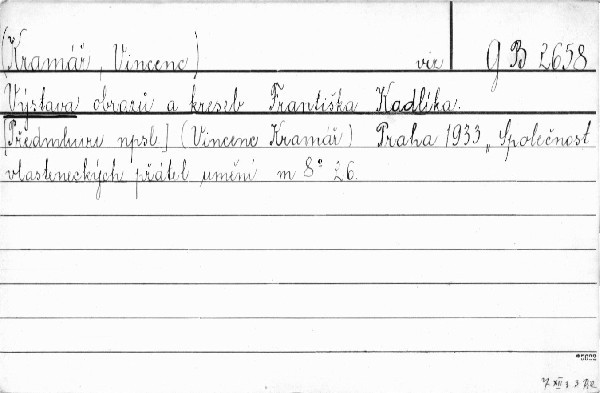 (Kramář, Vincenc) viz G B 2658
Výstava obrazů a kreseb Františka Kadlíka.
[Předmluvu npsl.] (Vincenc Kramář) Praha 1933 „Společnost
vlasteneckých přátel umění m 8° 26.